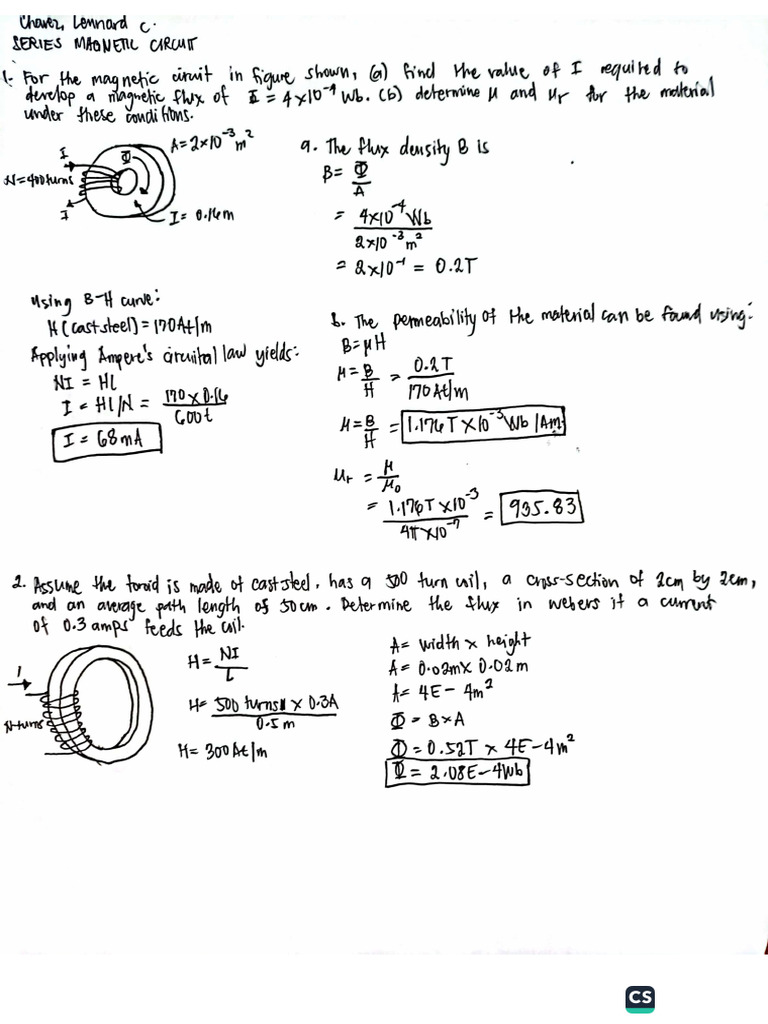 Chavez, Lennard C.
SERIES MAGNETIC CIRCUIT
1. For the magnetic circuit in figure shown, (a) find the value of I required to
develop a magnetic flux of Φ = 4×10⁻⁴ Wb. (b) determine μ and μr for the material
under these conditions.
A = 2×10⁻³ m²
I
Φ
N=400turns
I
I = 0.16m
a. The flux density B is
B = Φ/A
= 4×10⁻⁴ Wb / 2×10⁻³ m²
= 2×10⁻¹ = 0.2T
Using B-H curve:
H (cast steel) = 170At/m
Applying Ampere's circuital law yields:
NI = Hl
I = Hl/N = 170 × 0.16 / 600t
I = 68mA
b. The permeability of the material can be found using:
B=μH
μ = B/H = 0.2T / 170At/m
μ = B/H = 1.176T × 10⁻³ Wb/Am
μr = μ/μo
= 1.176T × 10⁻³ / 4π×10⁻⁷ = 935.83
2. Assume the toroid is made of cast steel, has a 500 turn coil, a cross-section of 2cm by 2cm,
and an average path length of 50cm. Determine the flux in webers if a current
of 0.3 amps feeds the coil.
I
N-turns
H = NI/L
H = 500 turns × 0.3A / 0.5m
H = 300At/m
A = width × height
A = 0.02m× 0.02m
A = 4E-4m²
Φ = B×A
Φ = 0.52T × 4E-4m²
Φ = 2.08E-4Wb
CS